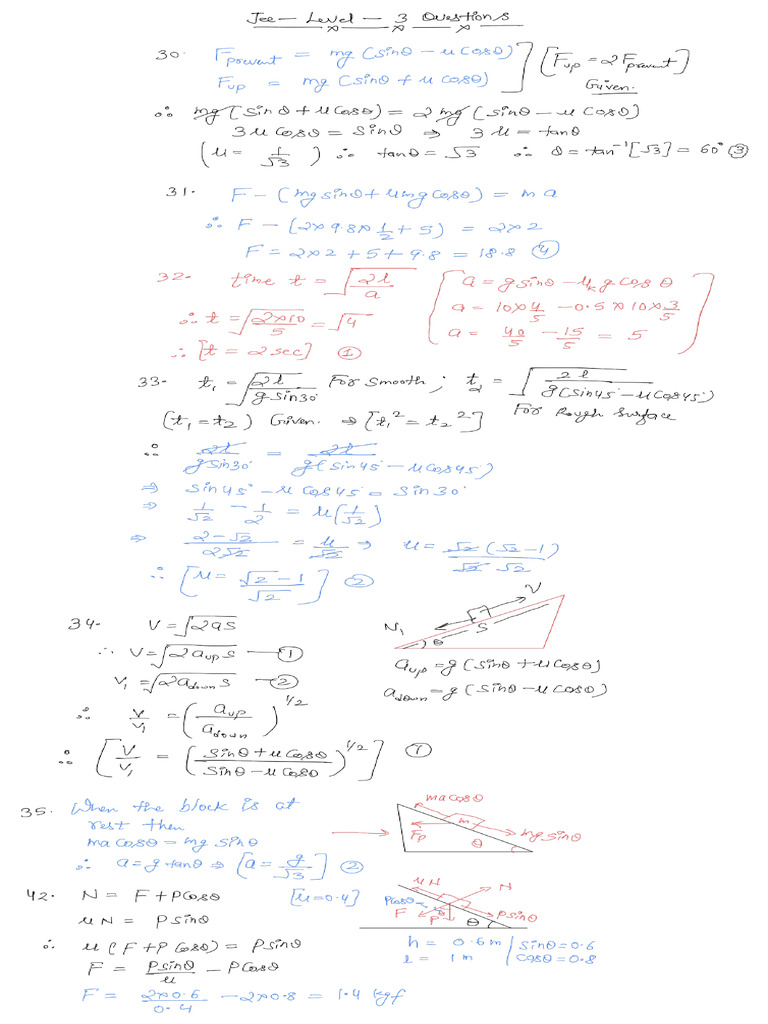 Jee - Level - 3 Questions
30. Fprevent = mg (sinθ - μ Cosθ)
Fup = mg (sinθ + μ Cosθ)
[Fup = 2 Fprevent]
Given.
∴ mg (sinθ + μ Cosθ) = 2 mg (sinθ - μ Cosθ)
3μ Cosθ = sinθ ⇒ 3μ = tanθ
(μ = 1/√3) ∴ tanθ = √3 ∴ θ = tan⁻¹[√3] = 60° ③
31. F - (mg sinθ + μmg cosθ) = m a
∴ F - (2×9.8×1/2 + 5) = 2×2
F = 2×2 + 5 + 9.8 = 18.8 ④
32. time t = √(2l/a)
∴ t = √(2×10/5) = √4
∴ [t = 2 sec] ①
a = g sinθ - μk g cos θ
a = 10×4/5 - 0.5×10×3/5
a = 40/5 - 15/5 = 5
33. t₁ = √(2l/g sin30°) For smooth; t₂ = √(2l/g(sin45° - μCos45°))
For Rough surface
(t₁ = t₂) Given. ⇒ [t₁² = t₂²]
∴ 2l/g sin30° = 2l/g(sin45° - μcos45°)
⇒ sin45° - μ Cos45 = sin30°
⇒ 1/√2 - 1/2 = μ(1/√2)
⇒ 2-√2/2√2 = μ/√2 ⇒ μ = √2(√2-1)/√2 √2
∴ [μ = √2-1/√2] ②
34. V = √2as
∴ V = √2aup s — ①
V₁ = √2adown s — ②
∴ V/V₁ = (aup/adown)^1/2
∴ [V/V₁ = (sinθ + μ Cosθ/sinθ - μ Cosθ)^1/2] ①
V
V₁
S
θ
aup = g (sinθ + μ Cosθ)
adown = g (sinθ - μ Cosθ)
35. When the block is at
rest then
ma cosθ = mg sinθ
∴ a = g tanθ ⇒ [a = g/√3] ②
ma cosθ
m
Fp
mg sinθ
θ
42. N = F + P Cosθ [μ = 0.4]
μN = P sinθ
∴ μ (F + P Cosθ) = P sinθ
F = P sinθ/μ - P Cosθ
F = 2×0.6/0.4 - 2×0.8 = 1.4 kgf
μN
N
Pcosθ
F
P
Psinθ
θ
h = 0.6m
l = 1m
sinθ = 0.6
cosθ = 0.8